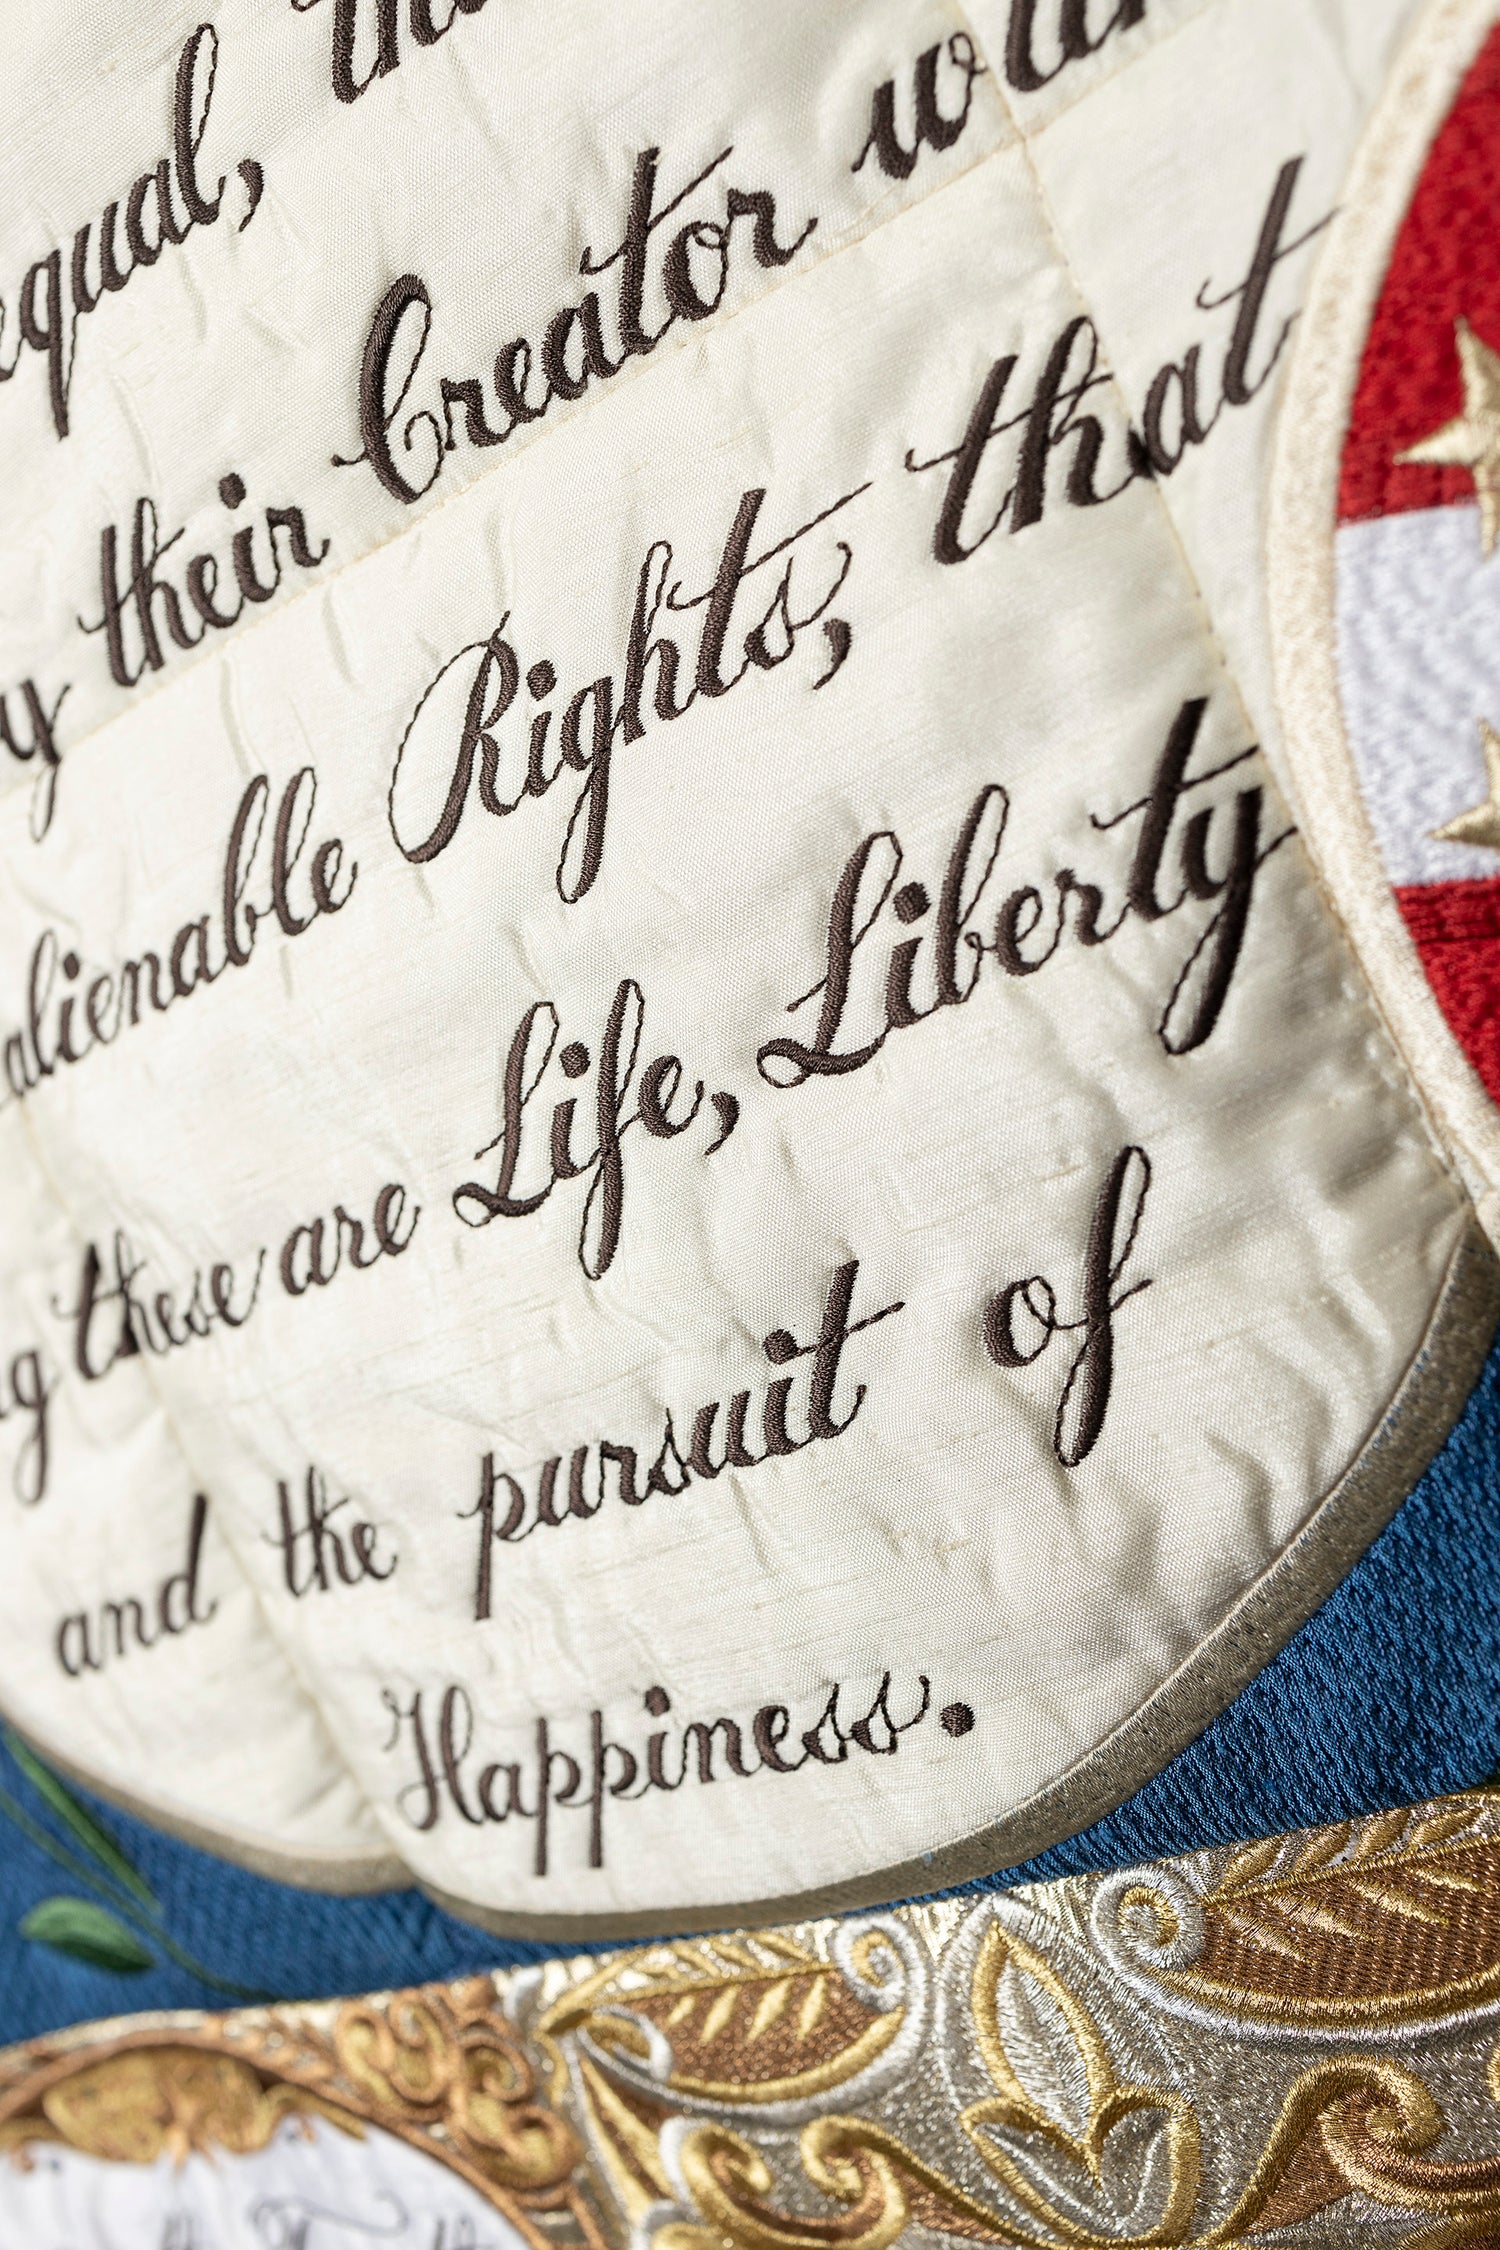 equal, that
their Creator with
alienable Rights, that
these are Life, Liberty
and the pursuit of
Happiness.